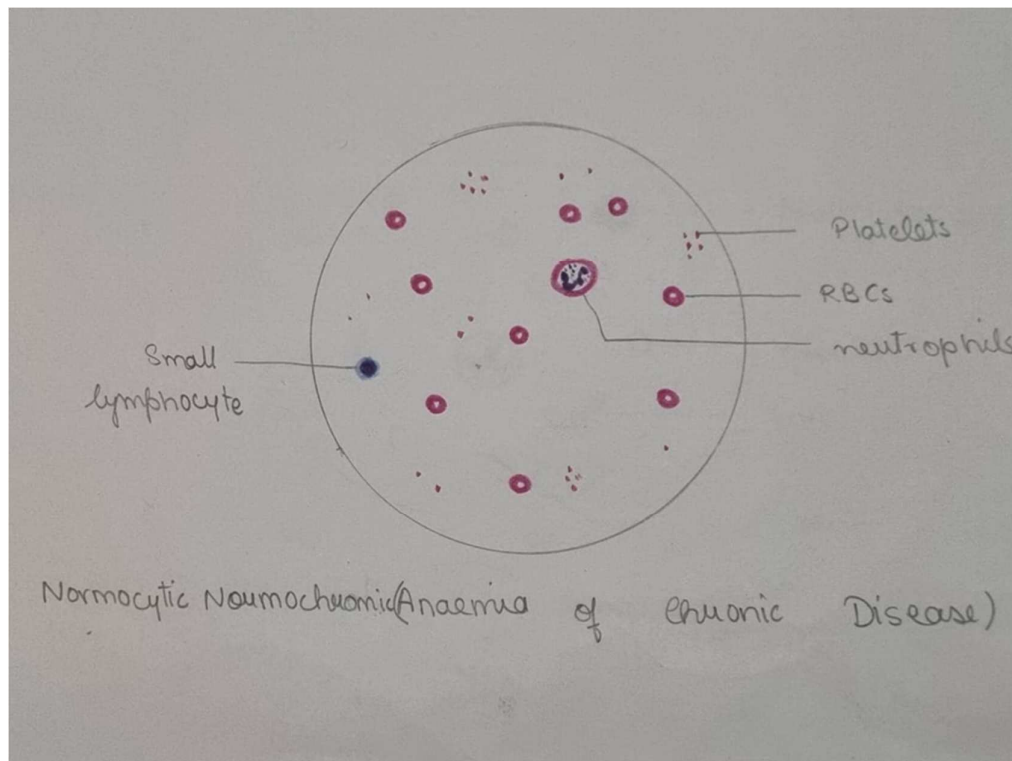 Platelets
RBCs
neutrophils
Small
lymphocyte
Normocytic Normochromic(Anaemia of Chronic Disease)